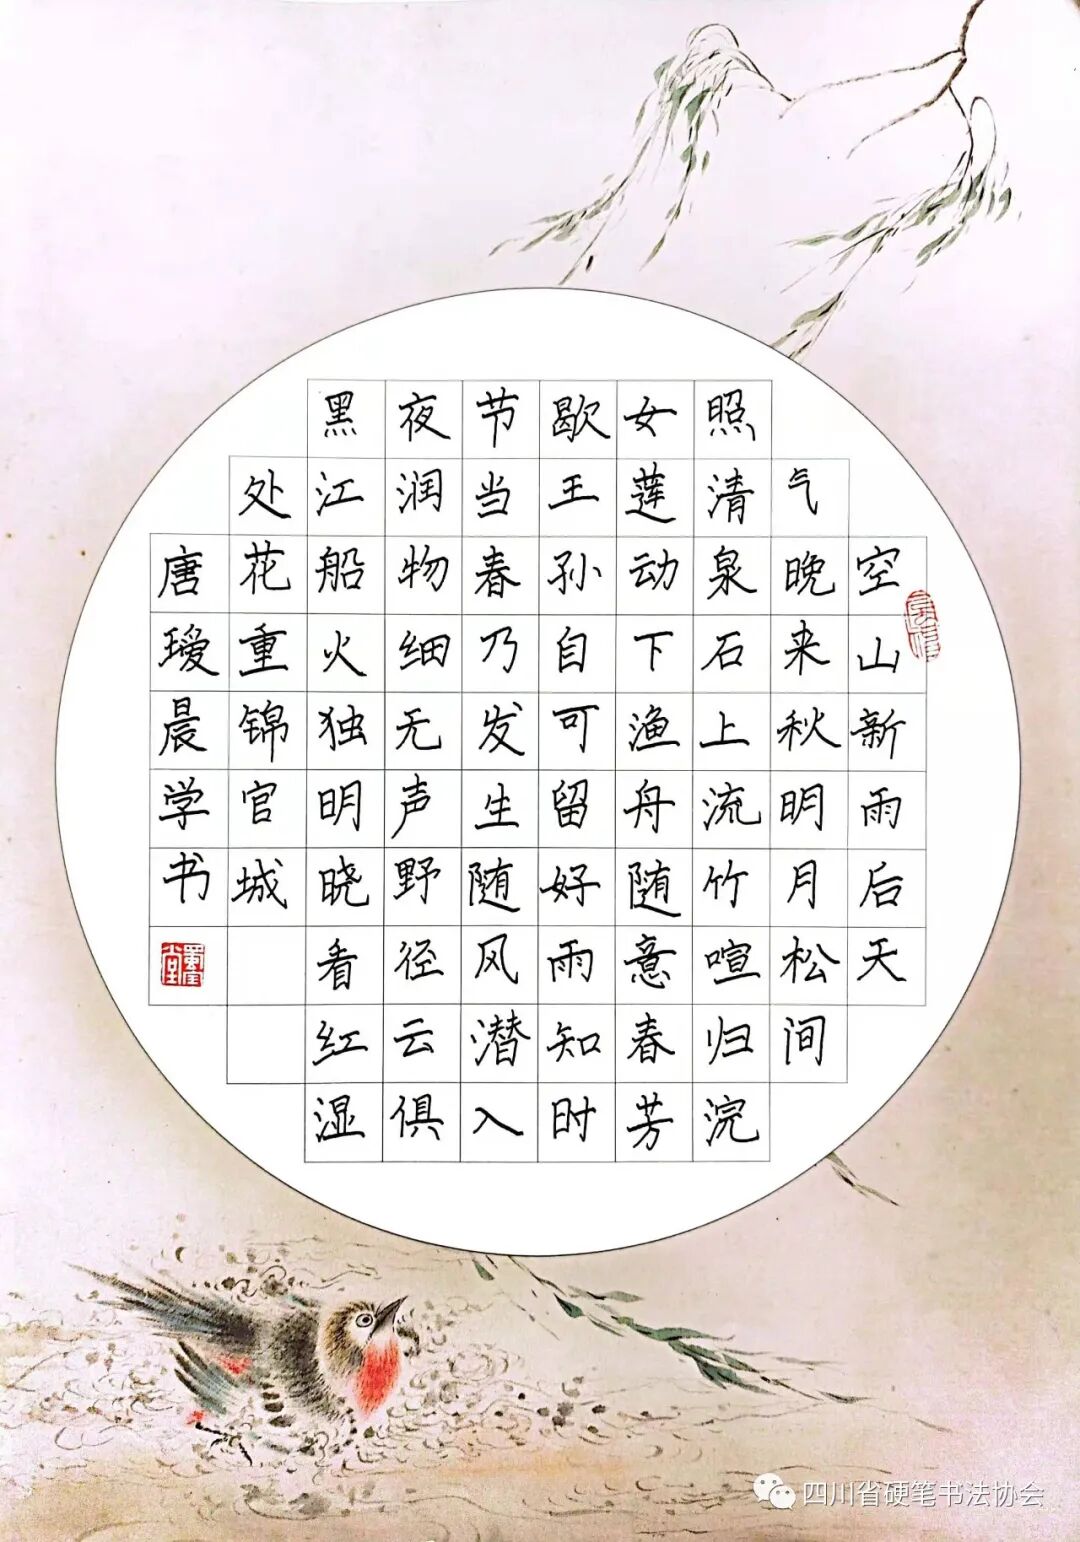 空山新雨后天
气晚来秋明月松间
照清泉石上流竹喧归浣
女莲动下渔舟随意春芳
歇王孙自可留好雨知时
节当春乃发生随风潜入
夜润物细无声野径云俱
黑江船火独明晓看红湿
处花重锦官城
唐瑷晨学书
四川省硬笔书法协会